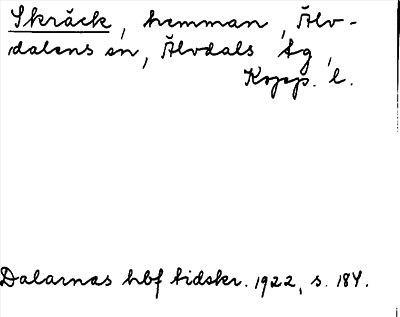 Skräck, hemman, Älv-
dalens sn, Älvdals tg,
Kopp. l.
Dalarnas hbf tidskr. 1922, s. 184.